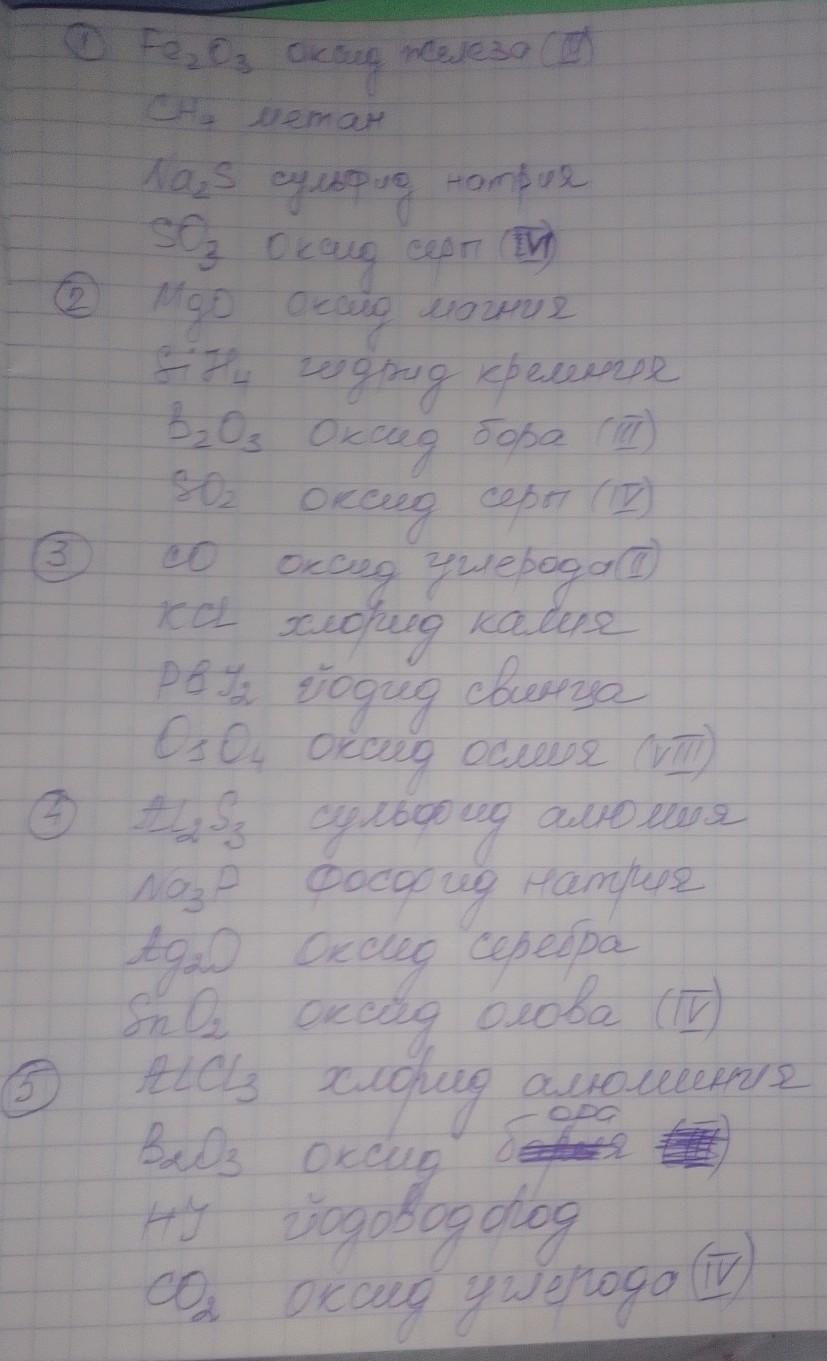 ① Fe₂O₃ оксид железа (III)
CH₄ метан
Na₂S сульфид натрия
SO₃ оксид серы (VI)
② MgO оксид магния
SiH₄ гидрид кремния
B₂O₃ оксид бора (III)
SO₂ оксид серы (IV)
③ CO оксид углерода (II)
KCl хлорид калия
PbJ₂ йодид свинца
OsO₄ оксид осмия (VIII)
④ Al₂S₃ сульфид алюмия
Na₃P фосфид натрия
Ag₂O оксид серебра
SnO₂ оксид олова (IV)
⑤ AlCl₃ хлорид алюминия
B₂O₃ оксид бора
HJ йодоводород
CO₂ оксид углерода (IV)